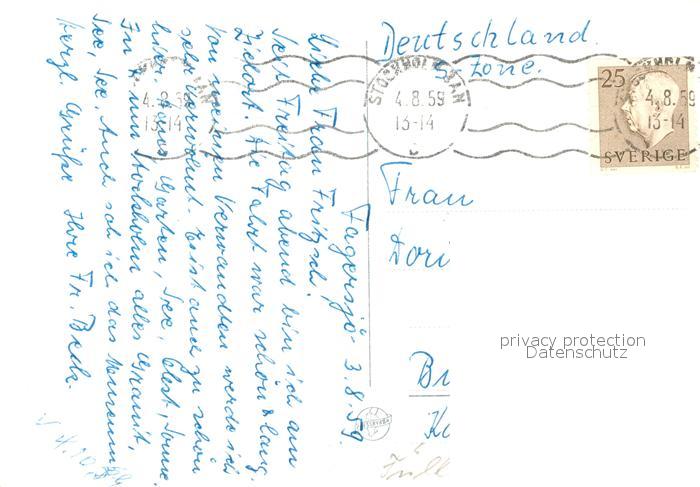 Fagersjö 3.8.59.
Liebe Frau Fritzsch!
Seit Freitag abend bin ich am
Zielort. Die Fahrt war schön & lang.
Von meinen Verwandten werde ich
sehr verwöhnt. Es ist auch zu schön
hier, Garten, See, Obst, Sonne
Im & um Stockholm alles Granit,
See, See. Auch sah ich das Museum
Herzl. Grüße Ihre Fr. Beck.
Deutschland.
Zone.
STOCKHOLM BAN
4.8.59
13-14
STOCKHOLM BAN
4.8.59
13-14
STOCKHOLM
4.8.59
13-14
25
SVERIGE
Frau
Dori
privacy protection
Datenschutz
Br